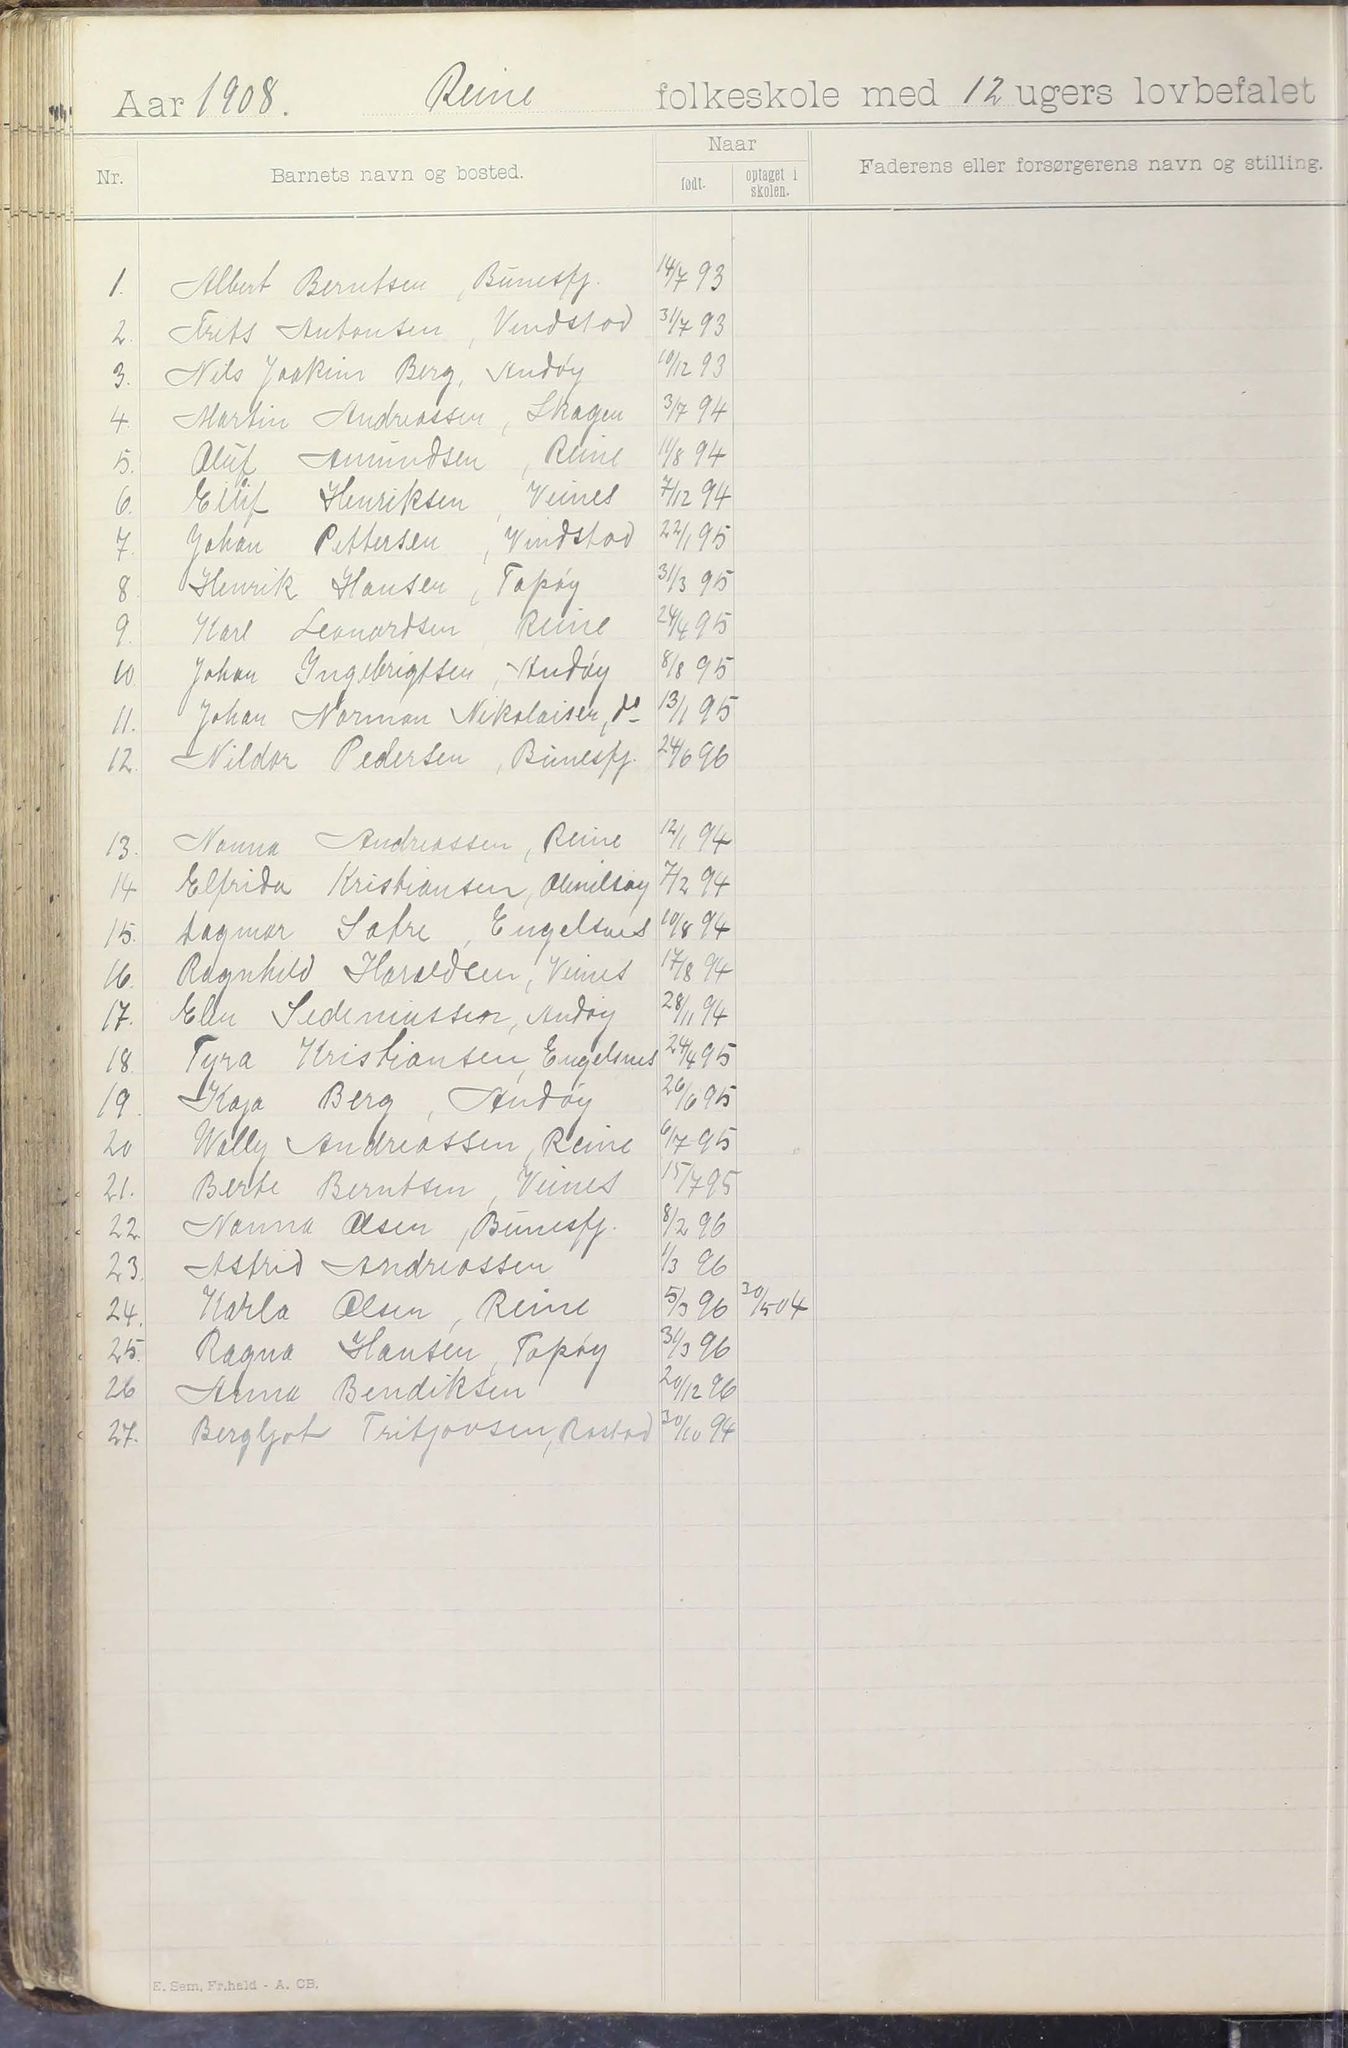 Aar 1908. Reine folkeskole med 12 ugers lovbefalet
Nr. Barnets navn og bosted. Naar født. optaget i skolen. Faderens eller forsørgerens navn og stilling.
1. Albert Berntsen, Bunesfj. 14/7 93
2. Frits Antonsen, Vindstad 31/7 93
3. Nils Joakim Berg, Andøy 10/12 93
4. Martin Andreassen, Skagen 3/7 94
5. Oluf Amundsen, Reine 11/8 94
6. Eilif Henriksen, Veines 7/12 94
7. Johan Pettersen, Vindstad 22/1 95
8. Henrik Hansen, Topøy 31/3 95
9. Karl Leonardsen Reine 24/4 95
10 Johan Ingebrigtsen, Andøy 8/8 95
11. Johan Norman Nikolaisen, do 13/1 95
12. Nildor Pedersen, Bunesfj. 24/6 96
13. Nanna Andreassen, Reine 12/1 94
14 Elfrida Kristiansen, Olenilsøy 7/2 94
15. Dagmar Sætre, Engelsnes 10/8 94
16. Ragnhild Haraldsen, Veines 17/8 94
17. Elen Sedeniussen, Andøy 28/11 94
18. Tyra Kristiansen, Engelsnes 24/4 95
19. Kaja Berg, Andøy 26/6 95
20 Wally Andreassen, Reine 6/7 95
21. Berte Berntsen, Veines 15/7 95
22. Nanna Olsen, Bunesfj. 8/2 96
23. Astrid Andreassen 1/3 96
24. Karla Olsen, Reine 5/3 96 30/5 04
25. Ragna Hansen, Topøy 31/3 96
26 Anna Bendiksen 20/12 96
27. Bergljot Tritjovsen, Rostad 30/10 94
E. Sem, Fr.hald - A. CB.